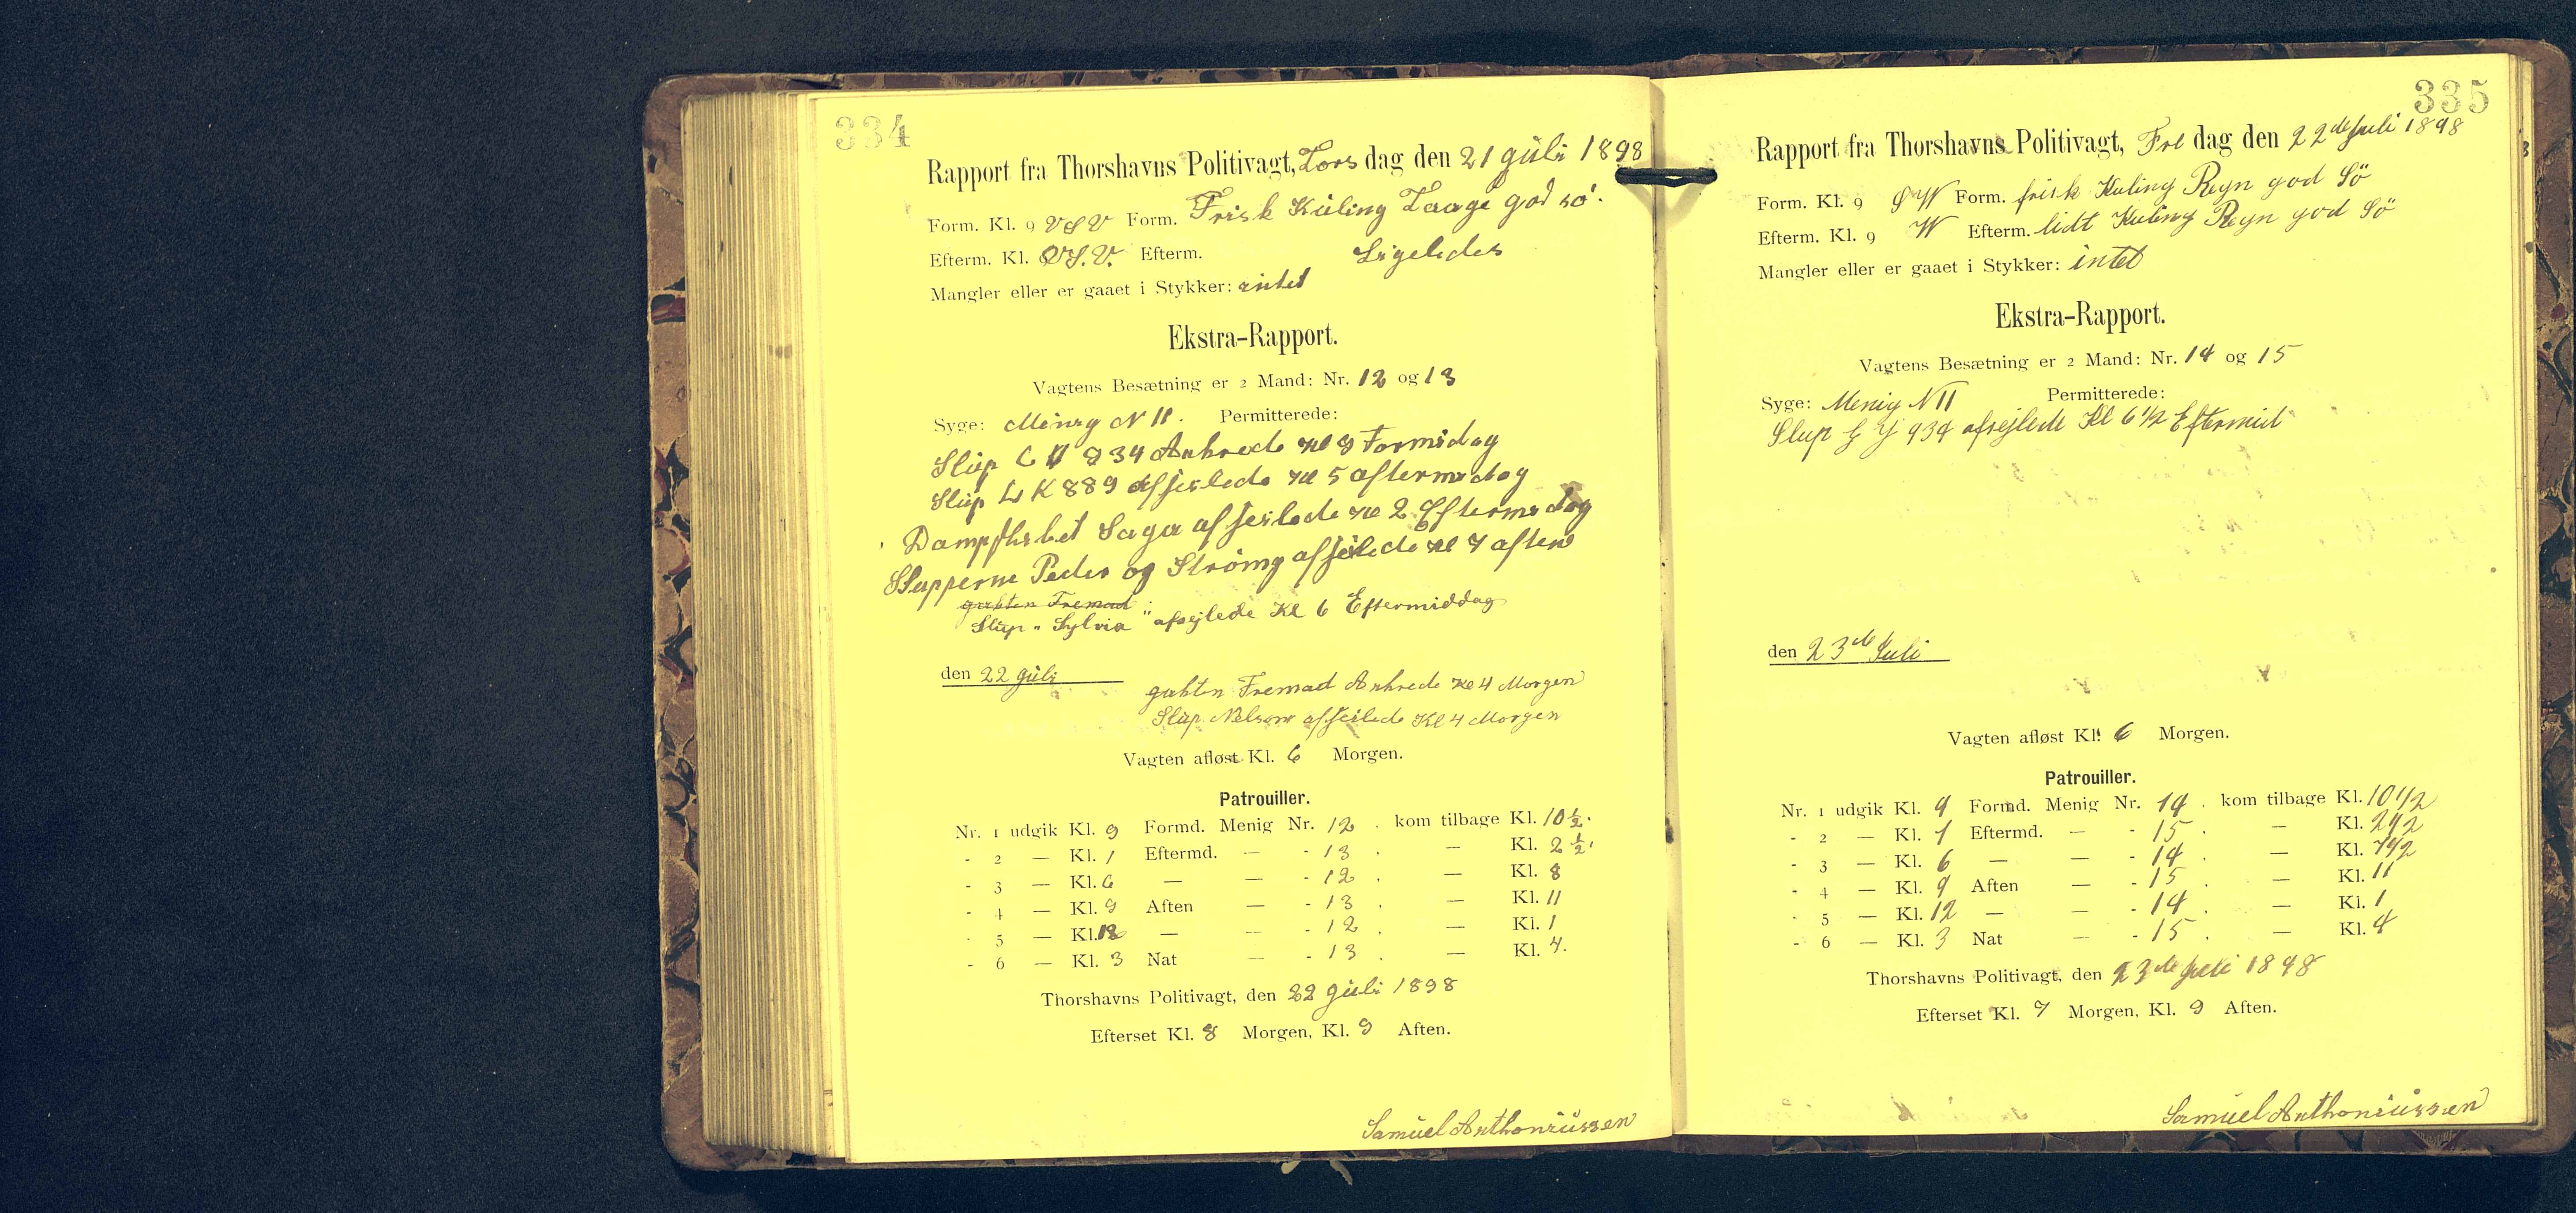 334
Rapport fra Thorshavns Politivagt, Torsdag den 21 Juli 1898
Form. Kl. 9 VSV Form. Frisk Kuling Taage god sö.
Efterm. Kl. 9 VS.V. Efterm. Ligeledes
Mangler eller er gaaet i Stykker: intet
Ekstra-Rapport.
Vagtens Besætning er 2 Mand: Nr. 12 og 13
Syge: Menig N 11. Permitterede:
Slup 934 Ankrede Kl 8 Formidag
Slup LK 889 afseilede Kl 5 aftermidag
Dampskibet Saga afseilede Kl 2 Eftermidag
Slupperne Peder og Strömö afseilede Kl 7 aften
gakten Fremad
Slup „Sylvia" afsejlede Kl 6 Eftermiddag
den 22 Juli
gakten Fremad Ankrede Kl 4 Morgen
Slup Nelson afseilede Kl 4 Morgen
Vagten afløst Kl. 6 Morgen.
Patrouiller.
Nr. 1 udgik Kl. 9 Formd. Menig Nr. 12 . kom tilbage Kl. 10 1/2.
- 2 — Kl. 1 Eftermd. — - 13 . — Kl. 2 1/2.
- 3 — Kl. 6 — — - 12 . — Kl. 8
- 4 — Kl. 9 Aften — - 13 . — Kl. 11
- 5 — Kl. 12 — — - 12 . — Kl. 1
- 6 — Kl. 3 Nat — - 13 . — Kl. 4.
Thorshavns Politivagt, den 22 Juli 1898
Efterset Kl. 8 Morgen, Kl. 9 Aften.
Samuel Anthoniussen
335
Rapport fra Thorshavns Politivagt, Fredag den 22de Juli 1898
Form. Kl. 9 SW Form. frisk Kuling Regn god Sö
Efterm. Kl. 9 W Efterm. lidt Kuling Regn god Sö
Mangler eller er gaaet i Stykker: intet
Ekstra-Rapport.
Vagtens Besætning er 2 Mand: Nr. 14 og 15
Syge: Menig N 11 Permitterede:
Slup G Y 934 afsejlede Kl 6 1/2 Eftermid
den 23de Juli
Vagten afløst Kl. 6 Morgen.
Patrouiller.
Nr. 1 udgik Kl. 9 Formd. Menig Nr. 14 . kom tilbage Kl. 10 1/2
- 2 — Kl. 1 Eftermd. — - 15 . — Kl. 2 1/2
- 3 — Kl. 6 — — - 14 . — Kl. 7 1/2
- 4 — Kl. 9 Aften — - 15 . — Kl. 11
- 5 — Kl. 12 — — - 14 . — Kl. 1
- 6 — Kl. 3 Nat — - 15 . — Kl. 4
Thorshavns Politivagt, den 23de Juli 1898
Efterset Kl. 7 Morgen, Kl. 9 Aften.
Samuel Anthoniussen